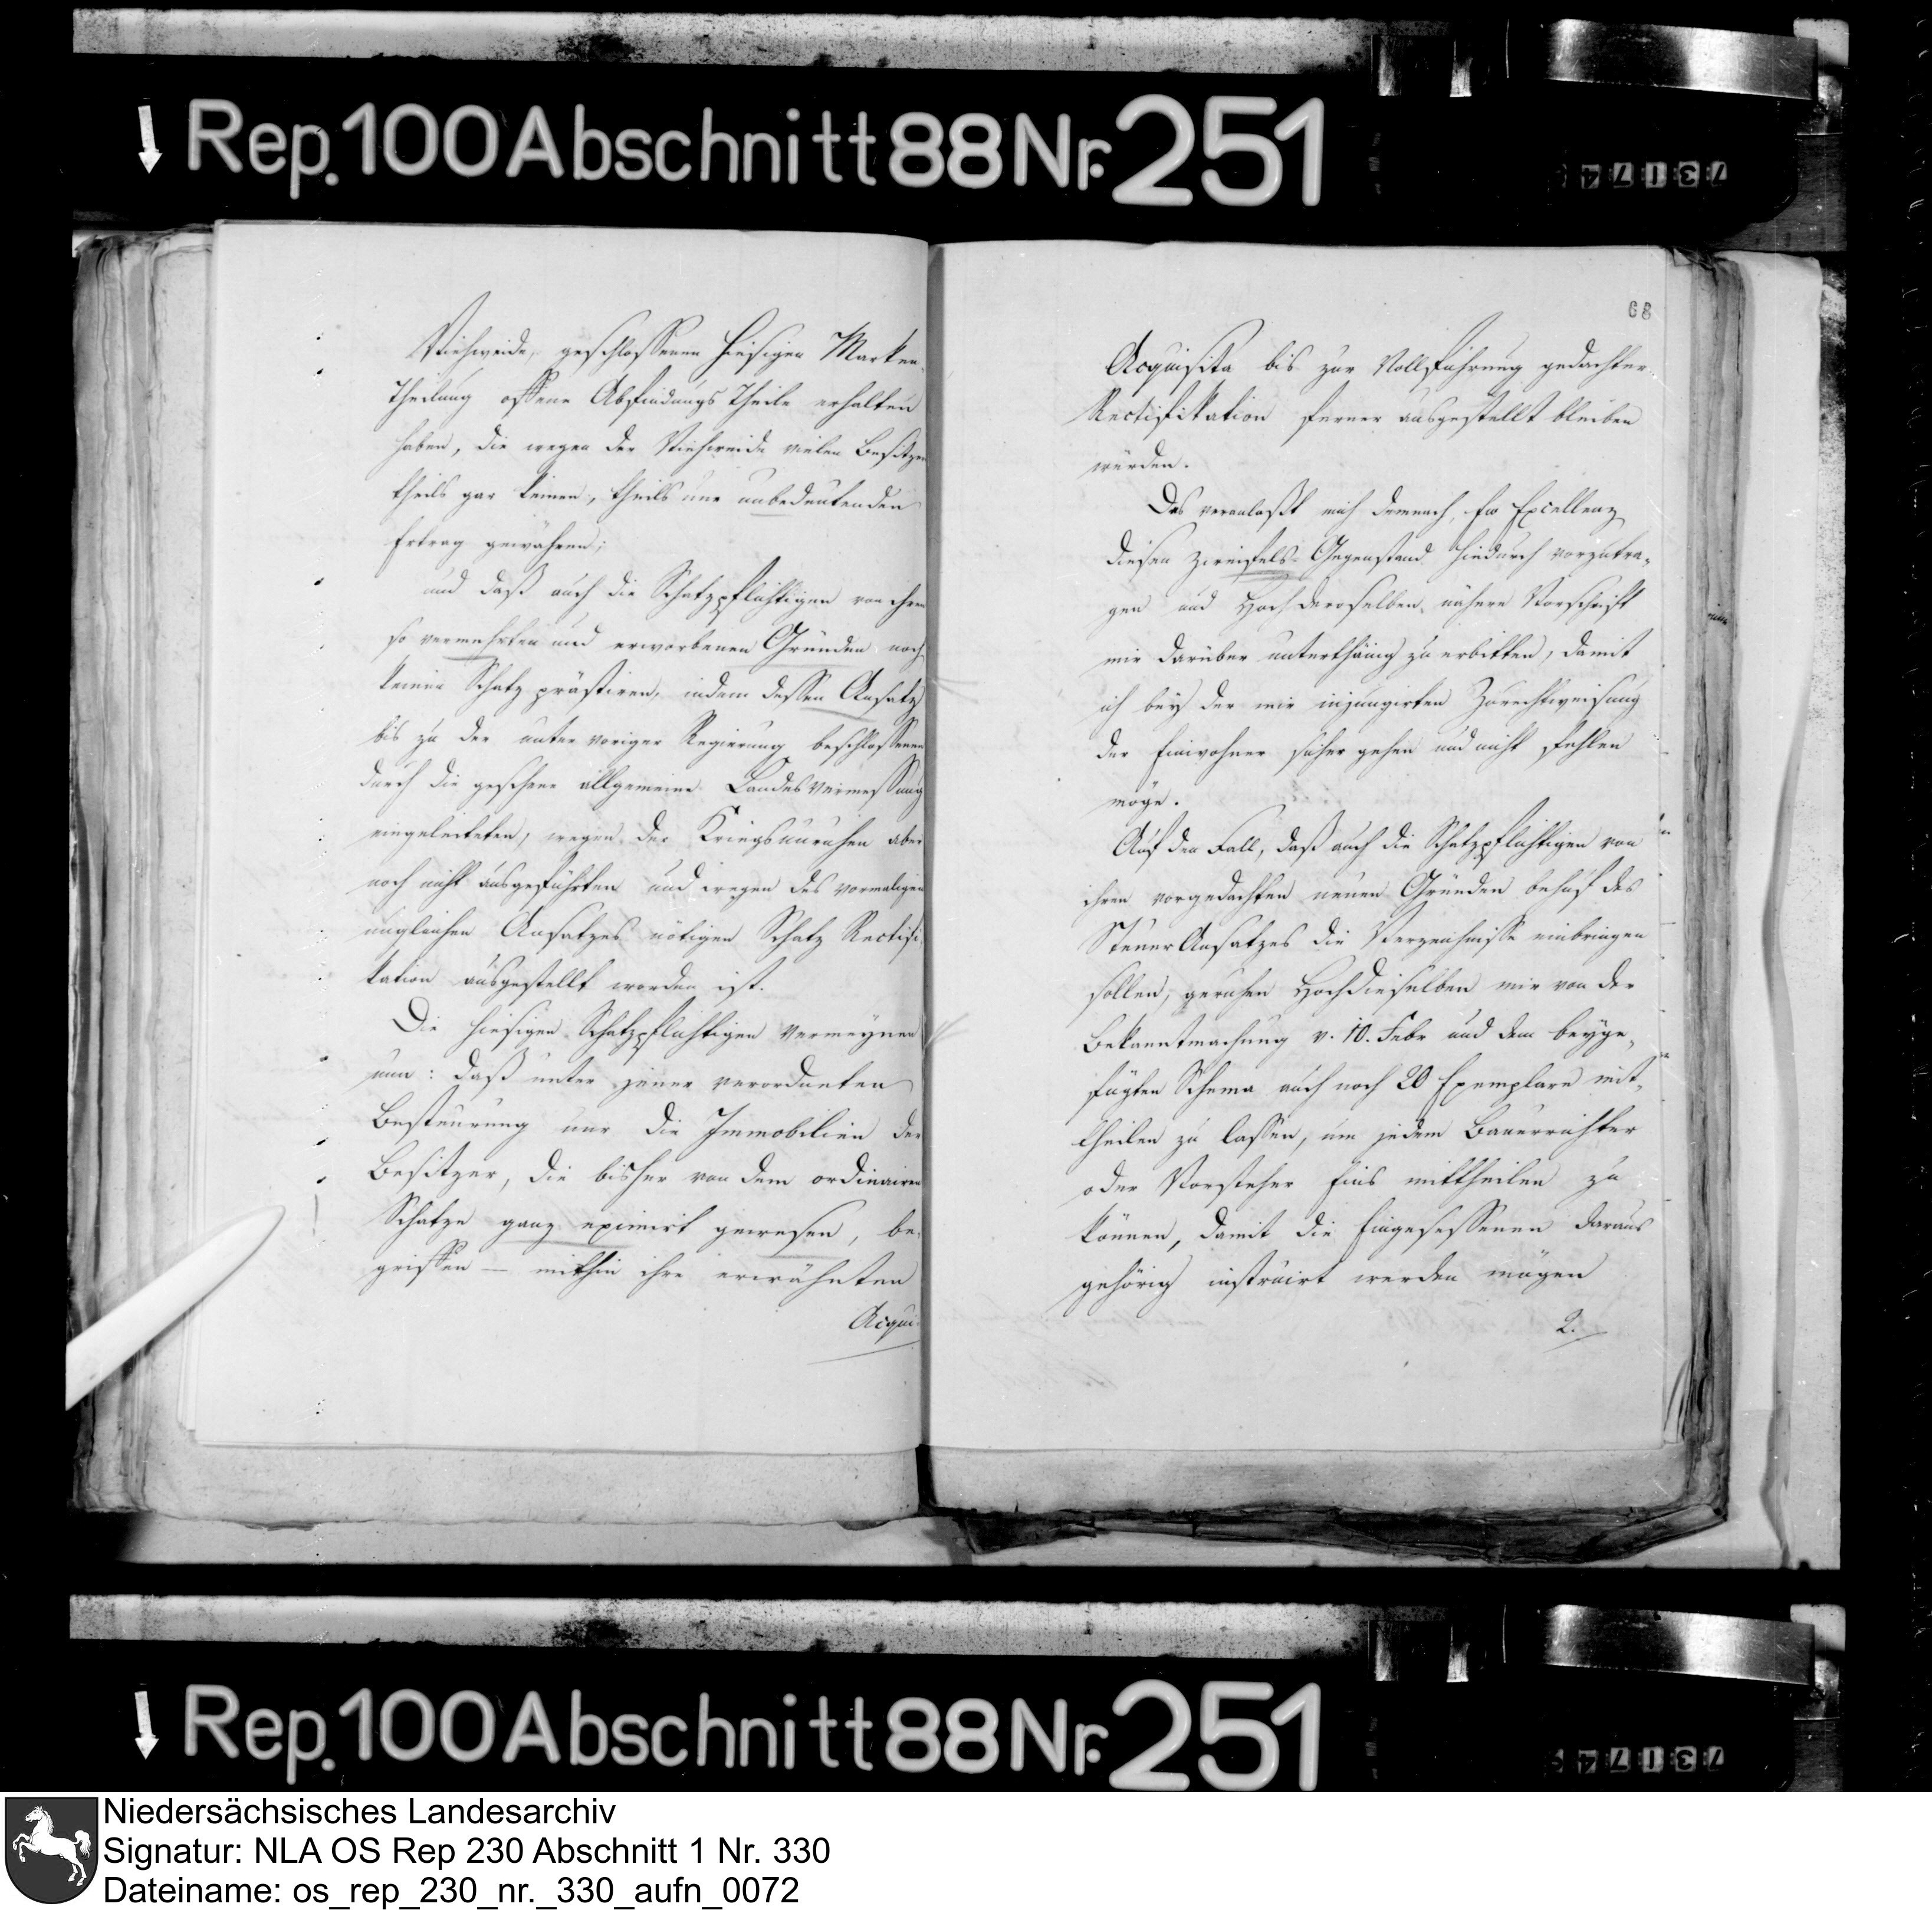 Rep. 100 Abschnitt 88 Nr. 251
73174
Viehweide, geschlossenen hiesigen Marken-
Theilung offene Abfindungs Theile erhalten
haben, die wegen der Viehweide vielen Besitzern
theils gar keinen, theils nur unbedeutenden
Ertrag gewähren;
und daß auch die Schatzpflichtigen von ihren
so vermehrten und erworbenen Gründen noch
keinen Schatz prästiren, indem dessen Ansatz
bis zu der unter voriger Regierung beschlossenen
durch die geschene allgemeine Landesvermessung
eingeleiteten, wegen der Kriegsunruhen aber
noch nicht ausgeführten und wegen des vormaligen
ungleichen Ansatzes nötigen Schatz Rectifi-
kation ausgestellt worden ist.
Die hiesigen Schatzpflichtigen vermeynen
nun: daß unter jener verordneten
Besteurung nur die Immobilien der
Besitzer, die bisher von dem ordinairen
Schatze ganz eximirt gewesen, be-
griffen – mithin ihre erwähnten
Acqui-
68
Acquisita bis zur Vollführung gedachter
Rectifikation ferner ausgestellt bleiben
würden.
Das veranlaßt mich demnach, Ew Excellenz
diesen Zweifels-Gegenstand hiedurch vorzutra-
gen und Hochderoselben nähere Vorschrift
mir darüber unterthänig zu erbitten, damit
ich bey der mir injungirten Zurechtweisung
der Einwohner sicher gehen und nicht fehlen
möge.
Auf den Fall, daß auch die Schatzpflichtigen von
ihren vorgedachten neuen Gründen behuf des
SteuerAnsatzes die Verzeichnisse einbringen
sollen, geruhen Hochdieselben mir von der
Bekanntmachung v. 10. Febr und dem beyge-
fügten Schema auch noch 20 Exemplare mit-
theilen zu lassen, um jedem Bauerrichter
oder Vorsteher Eins mittheilen zu
können, damit die Eingesessenen daraus
gehörig instruirt werden mögen
2.
Rep. 100 Abschnitt 88 Nr. 251
73174
Niedersächsisches Landesarchiv
Signatur: NLA OS Rep 230 Abschnitt 1 Nr. 330
Dateiname: os_rep_230_nr._330_aufn_0072